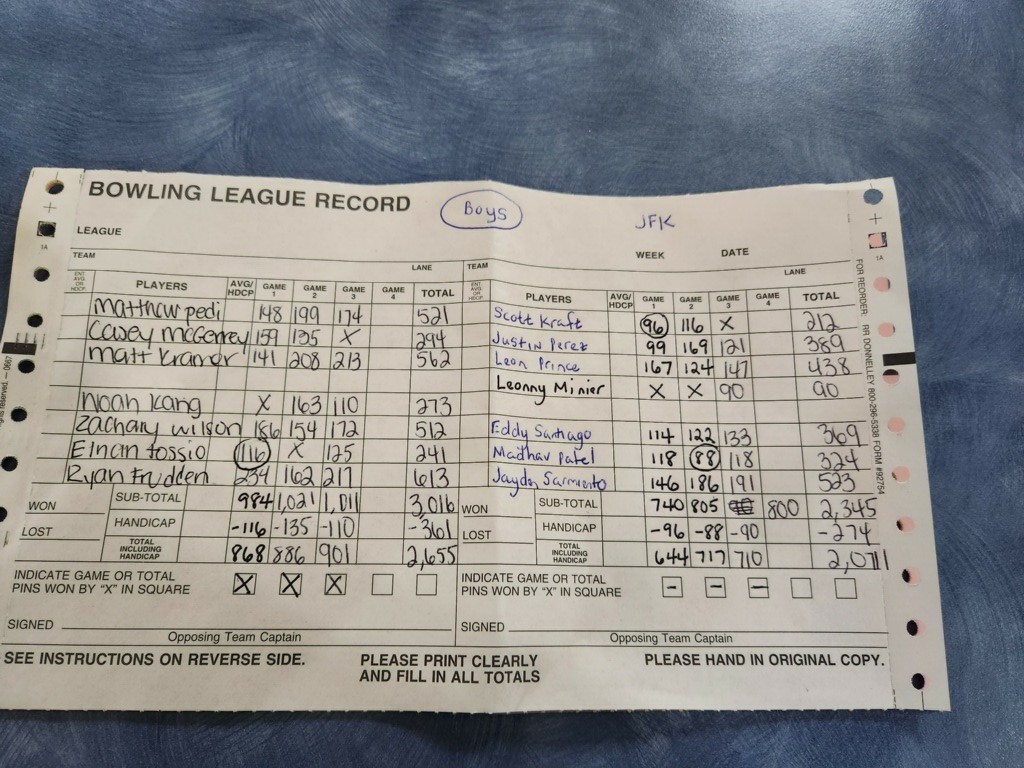 BOWLING LEAGUE RECORD
Boys
JFK
LEAGUE
WEEK DATE
TEAM LANE
TEAM LANE
ENT. AVG. OR HDCP PLAYERS AVG/HDCP GAME 1 GAME 2 GAME 3 GAME 4 TOTAL
ENT. AVG. OR HDCP PLAYERS AVG/HDCP GAME 1 GAME 2 GAME 3 GAME 4 TOTAL
Matthew pedi 148 199 174 521
Scott Kraft 96 116 X 212
Casey McGerrey 159 135 X 294
Justin Perez 99 169 121 389
Matt Kramer 141 208 213 562
Leon Prince 167 124 147 438
Leonny Minier X X 90 90
Noah Kang X 163 110 273
Zachary Wilson 186 154 172 512
Eddy Santiago 114 122 133 369
Einan Fossio 116 X 125 241
Madhav Patel 118 88 118 324
Ryan Frudden 234 162 217 613
Jayden Sarmiento 146 186 191 523
WON SUB-TOTAL 984 1,021 1,011 3,016
WON SUB-TOTAL 740 805 800 2,345
LOST HANDICAP -116 -135 -110 -361
LOST HANDICAP -96 -88 -90 -274
TOTAL INCLUDING HANDICAP 868 886 901 2,655
TOTAL INCLUDING HANDICAP 644 717 710 2,071
INDICATE GAME OR TOTAL
PINS WON BY "X" IN SQUARE X X X
INDICATE GAME OR TOTAL
PINS WON BY "X" IN SQUARE - - -
SIGNED
Opposing Team Captain
SIGNED
Opposing Team Captain
SEE INSTRUCTIONS ON REVERSE SIDE.
PLEASE PRINT CLEARLY
AND FILL IN ALL TOTALS
PLEASE HAND IN ORIGINAL COPY.
1A
1A
FOR REORDER: RR DONNELLEY 800-296-5338 FORM #92754
reserved. — 0667